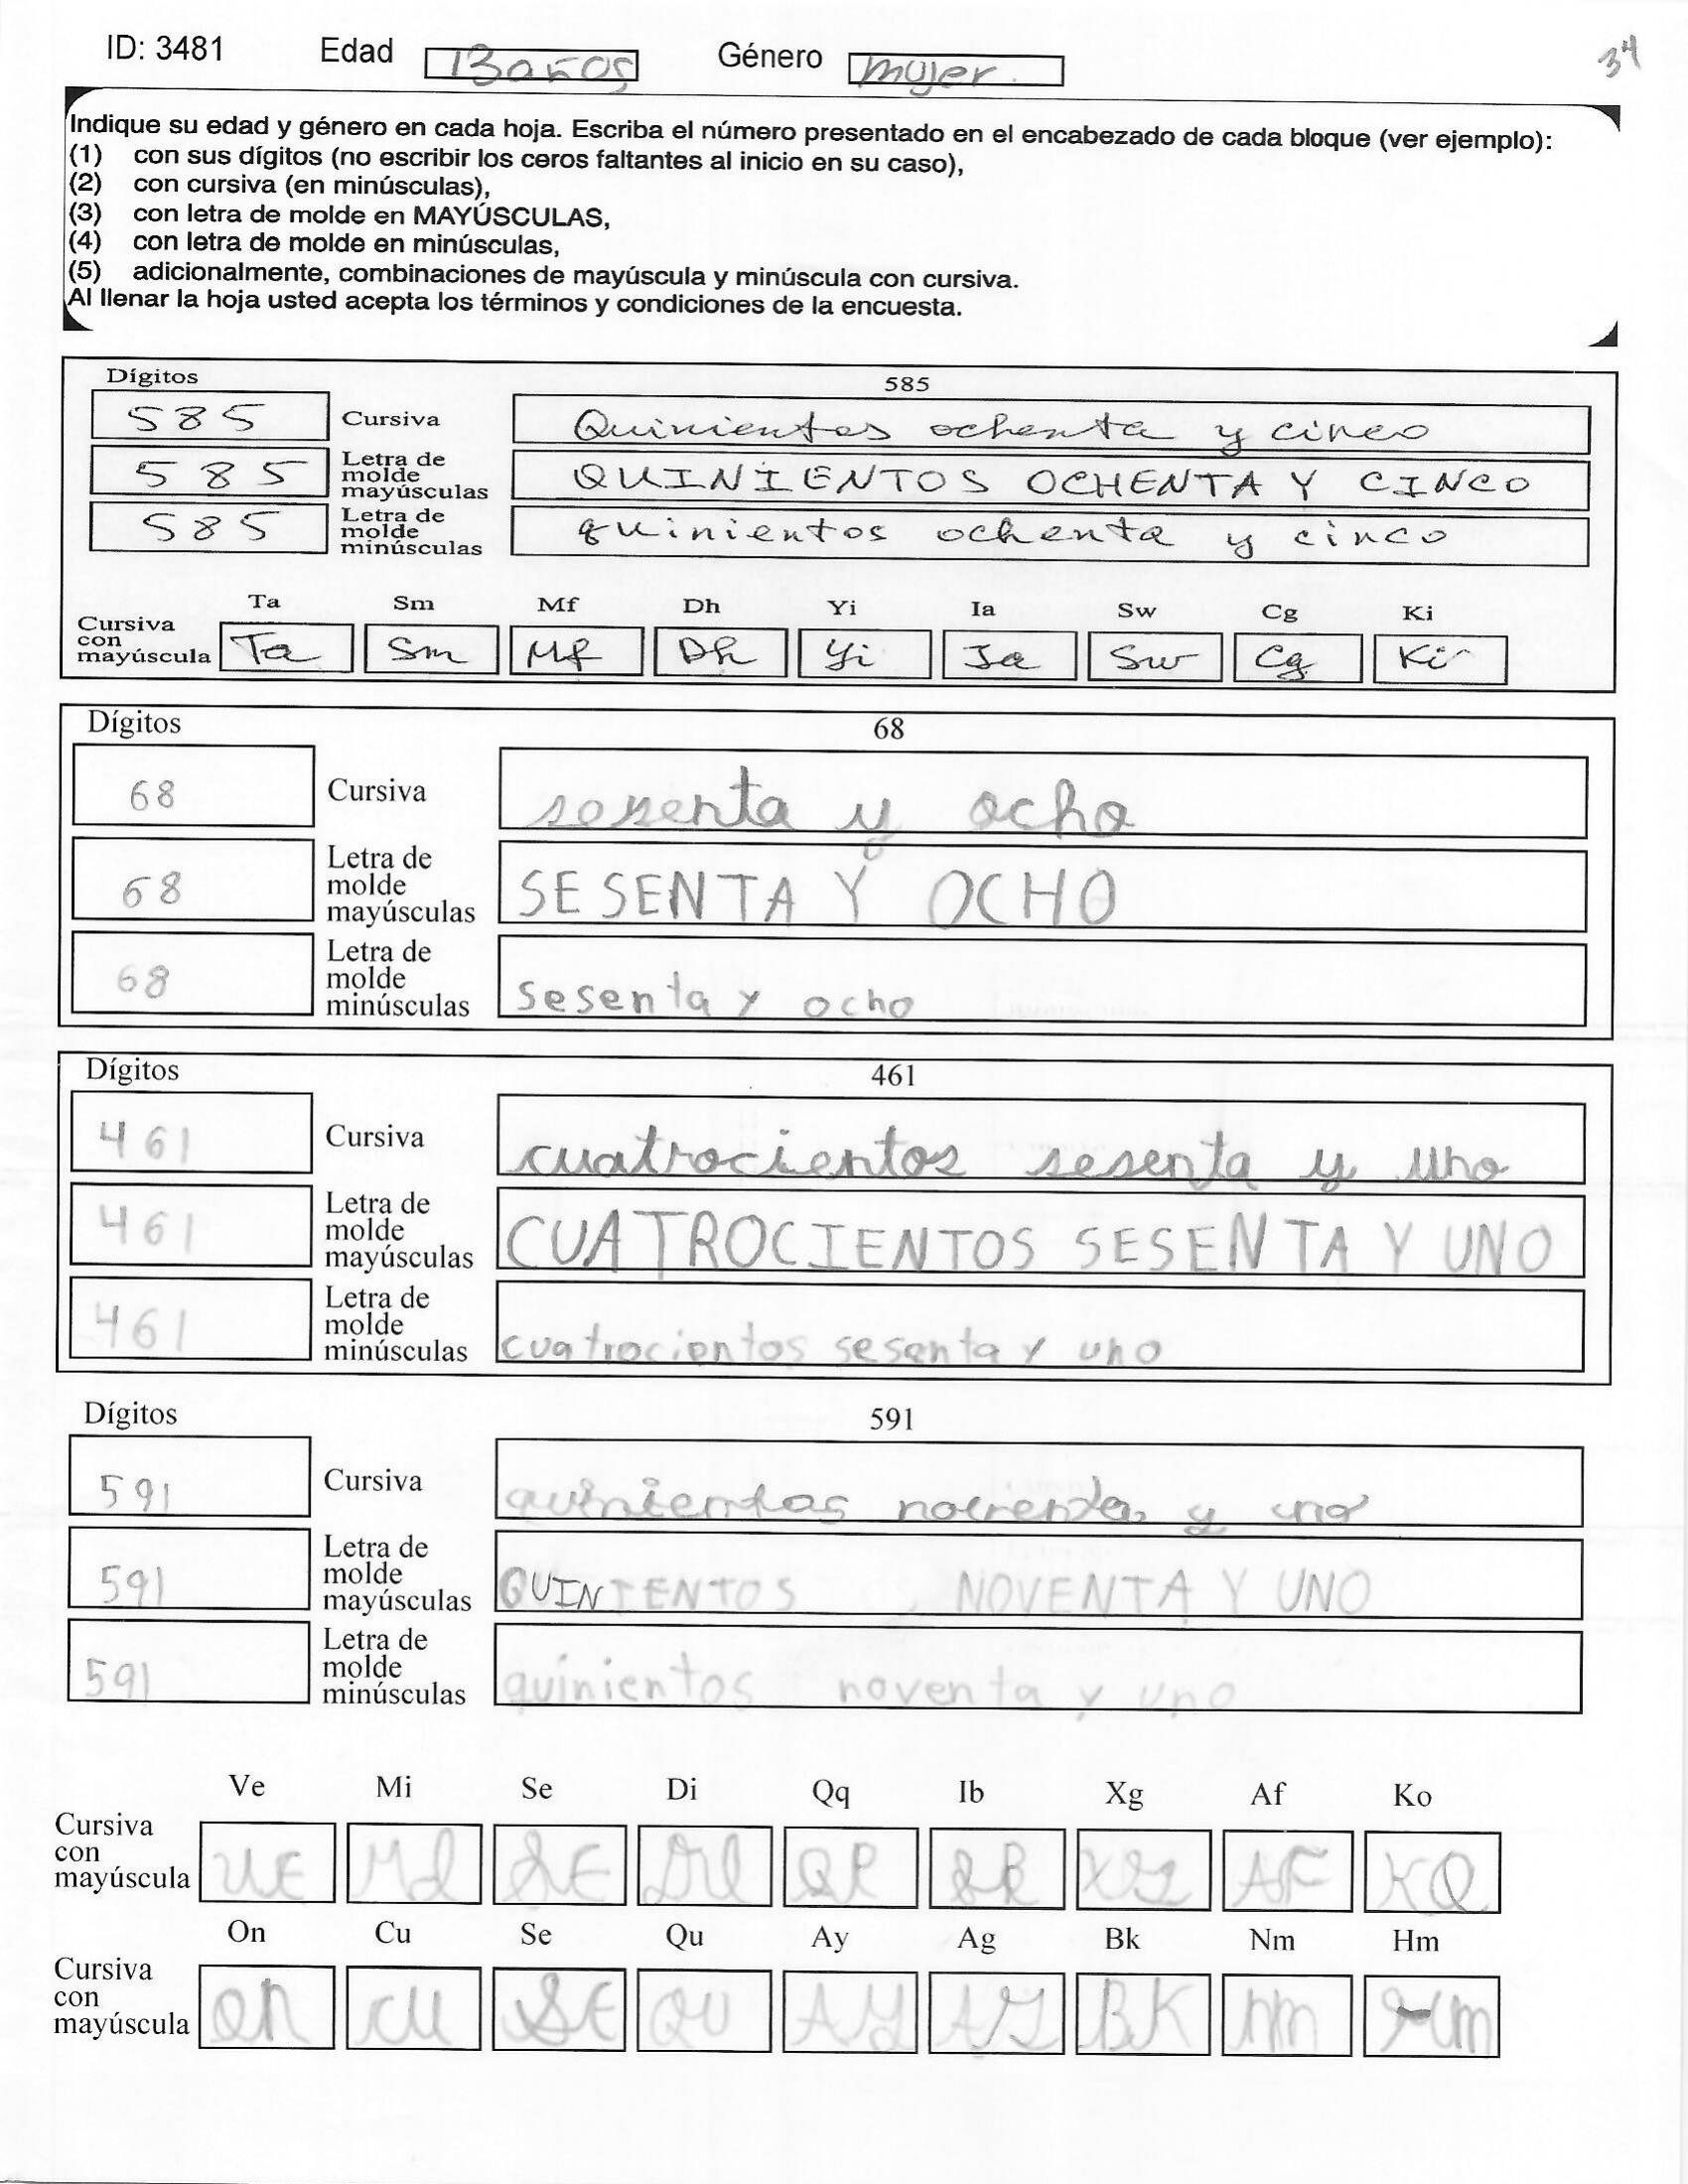 ID: 3481 Edad 13 años Género mujer 34
Indique su edad y género en cada hoja. Escriba el número presentado en el encabezado de cada bloque (ver ejemplo):
(1) con sus dígitos (no escribir los ceros faltantes al inicio en su caso),
(2) con cursiva (en minúsculas),
(3) con letra de molde en MAYÚSCULAS,
(4) con letra de molde en minúsculas,
(5) adicionalmente, combinaciones de mayúscula y minúscula con cursiva.
Al llenar la hoja usted acepta los términos y condiciones de la encuesta.
Dígitos 585
585 Cursiva Quinientos ochenta y cinco
585 Letra de molde mayúsculas QUINIENTOS OCHENTA Y CINCO
585 Letra de molde minúsculas quinientos ochenta y cinco
Ta Sm Mf Dh Yi Ia Sw Cg Ki
Cursiva con mayúscula Ta Sm Mf Dh Yi Ia Sw Cg Ki
Dígitos 68
68 Cursiva sesenta y ocho
68 Letra de molde mayúsculas SESENTA Y OCHO
68 Letra de molde minúsculas sesenta y ocho
Dígitos 461
461 Cursiva cuatrocientos sesenta y uno
461 Letra de molde mayúsculas CUATROCIENTOS SESENTA Y UNO
461 Letra de molde minúsculas cuatrocientos sesenta y uno
Dígitos 591
591 Cursiva quinientos noventa y uno
591 Letra de molde mayúsculas QUINIENTOS NOVENTA Y UNO
591 Letra de molde minúsculas quinientos noventa y uno
Ve Mi Se Di Qq Ib Xg Af Ko
Cursiva con mayúscula VE MI SE DI QP XG AF KO
On Cu Se Qu Ay Ag Bk Nm Hm
Cursiva con mayúscula On CU SE QU AY AG BK Nm Hm